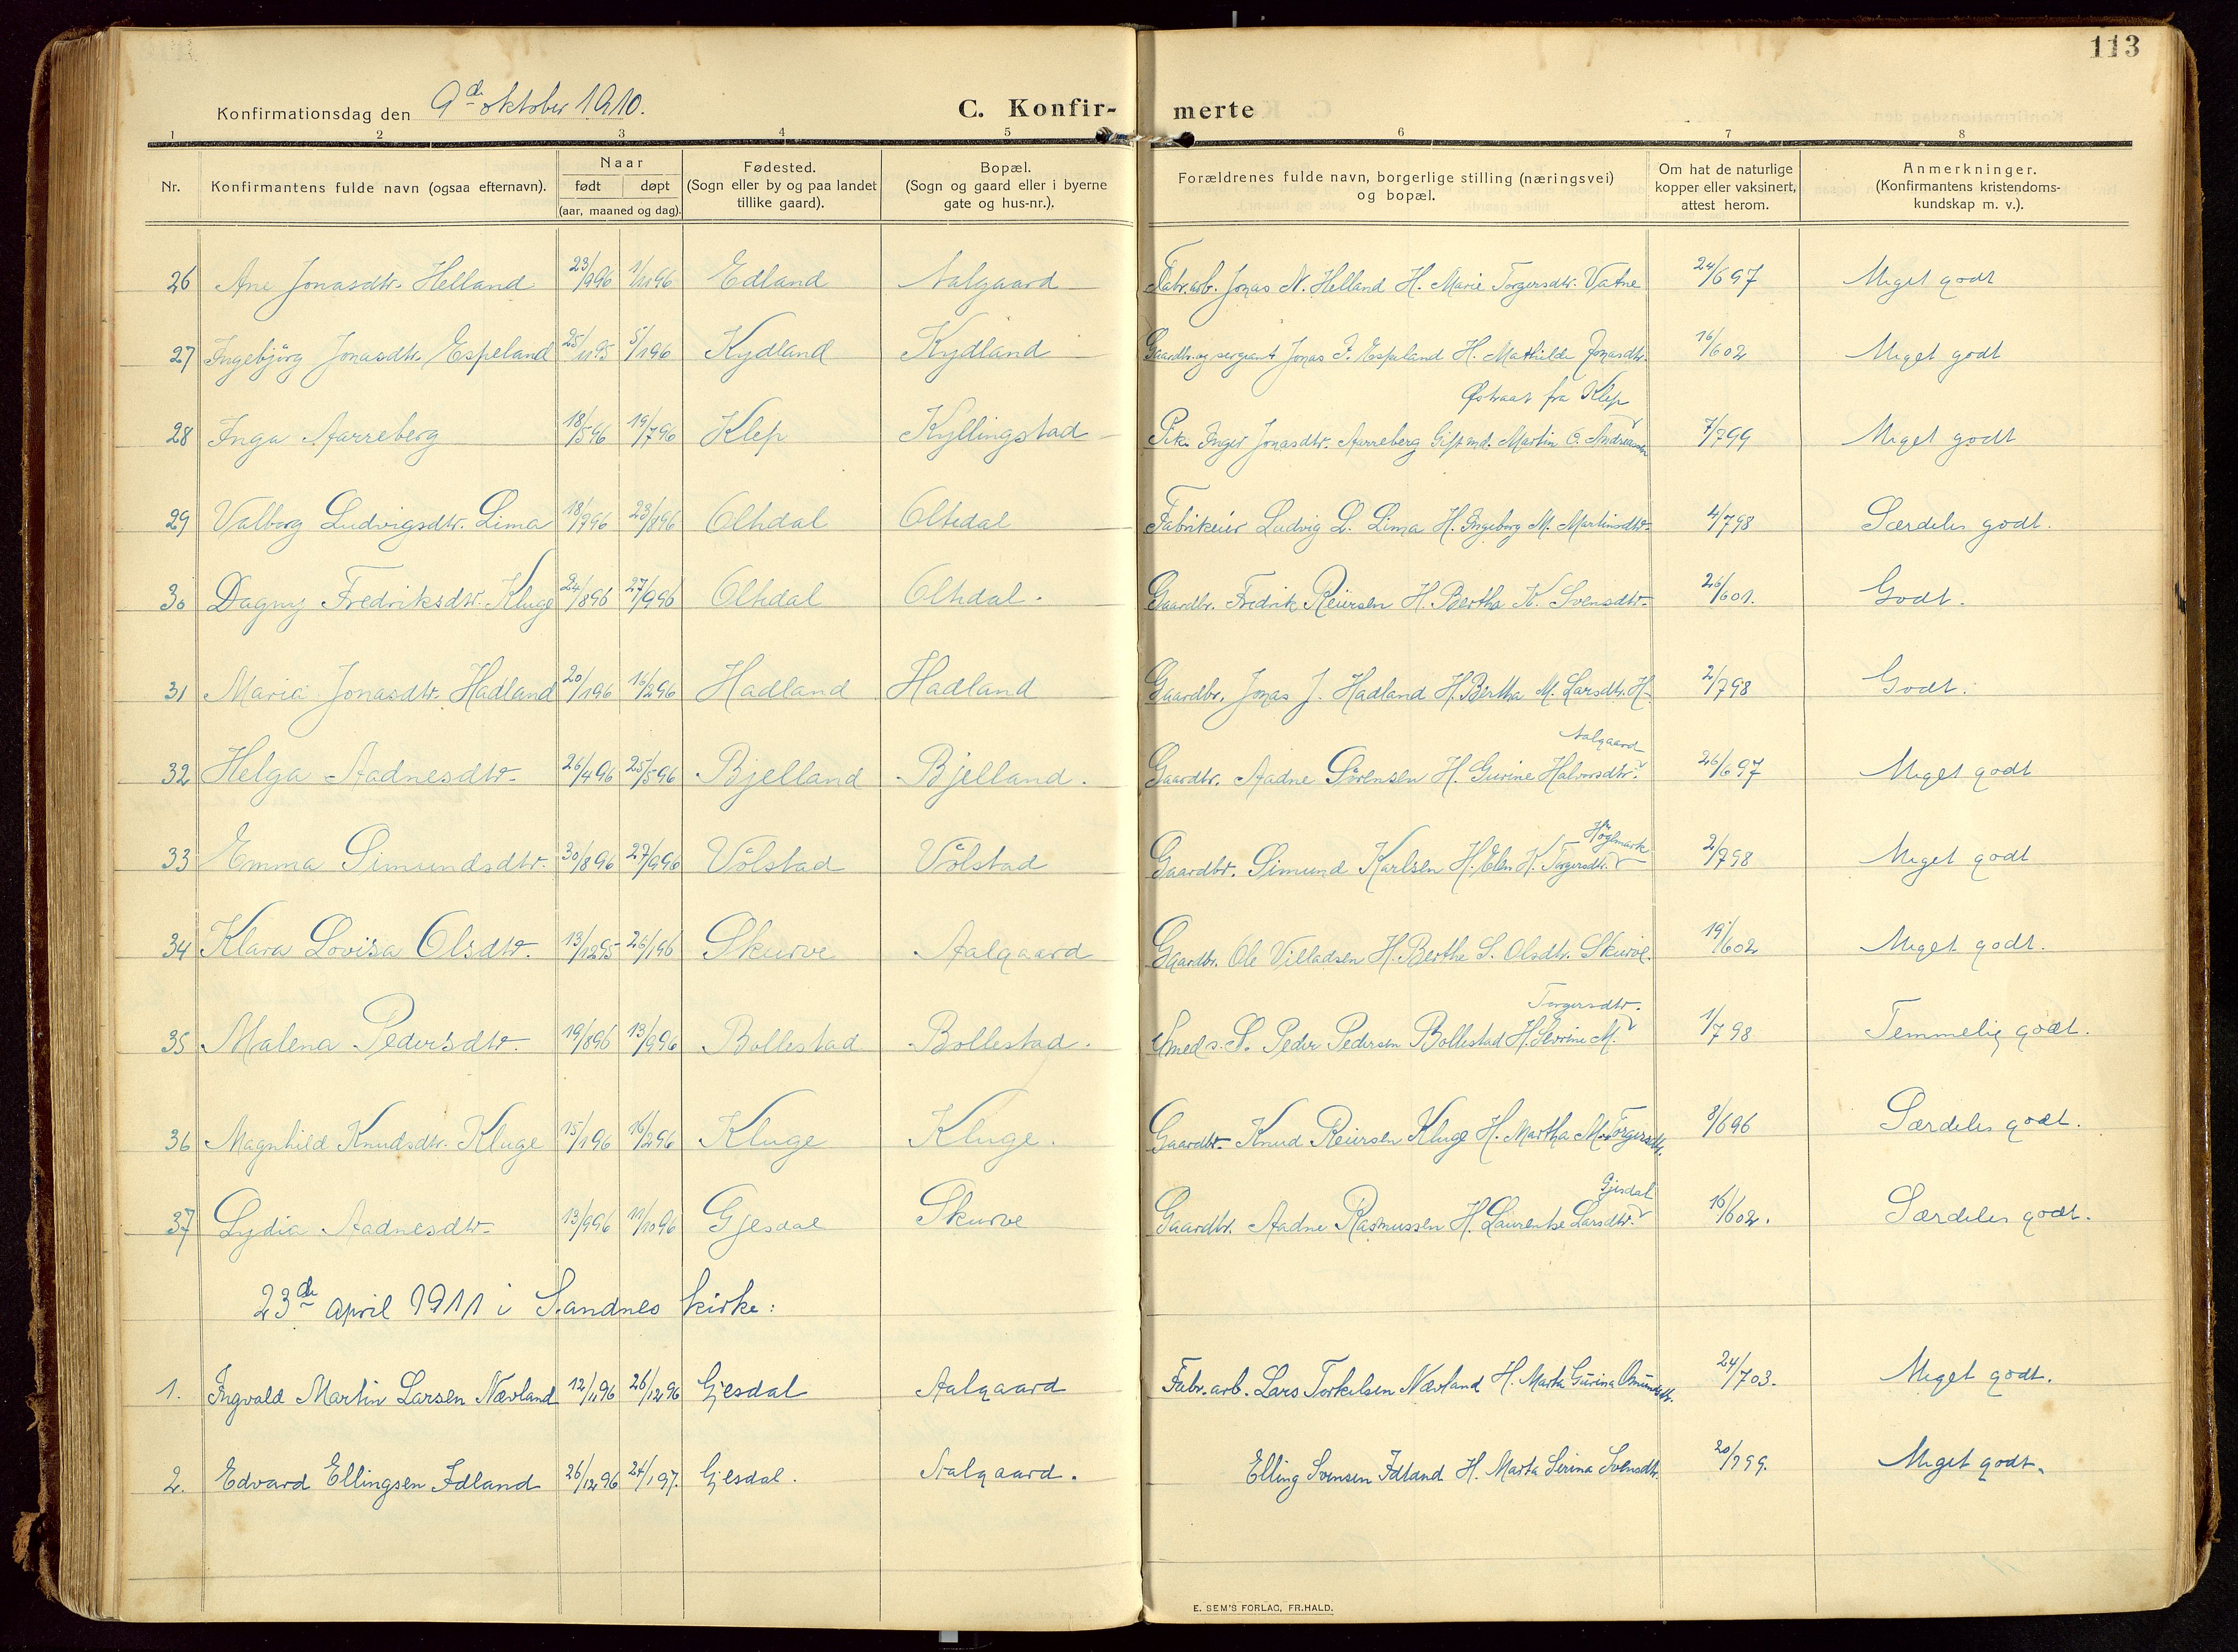 113
Konfirmationsdag den 9de oktober 1910. C. Konfir- merte
1 2 3 4 5 6 7 8
Nr. Konfirmantens fulde navn (ogsaa efternavn). Naar født døpt (aar, maaned og dag). Fødested. (Sogn eller by og paa landet tillike gaard). Bopæl. (Sogn og gaard eller i byerne gate og hus-nr.). Forældrenes fulde navn, borgerlige stilling (næringsvei) og bopæl. Om hat de naturlige kopper eller vaksinert, attest herom. Anmerkninger. (Konfirmantens kristendoms-kundskap m. v.).
26 Ane Jonasdtr. Helland 23/9 96 1/11 96 Edland Aalgaard Fabr.arb. Jonas N. Helland H. Marie Torgersdtr. Vatne 24/6 97 Meget godt
27 Ingebjörg Jonasdtr. Espeland 25/11 95 5/1 96 Kydland Kydland Gaardbr. og sergeant Jonas J. Espeland H. Mathilde Jonasdtr. Østraat fra Klep 16/6 02 Meget godt
28 Inga Aarreberg 18/5 96 19/7 96 Klep Kyllingstad Pik. Inger Jonasdtr. Aarreberg Gift md. Martin O. Andreassen 7/7 99 Meget godt
29 Valborg Ludvigsdtr. Lima 18/7 96 23/8 96 Oltedal Oltedal Fabrikeier Ludvig L. Lima H. Ingeborg M. Martinsdtr. 4/7 98 Særdeles godt.
30 Dagny Fredriksdtr. Kluge 24/8 96 27/9 96 Oltedal Oltedal. Gaardbr. Fredrik Reiersen H. Bertha K. Svensdtr. 26/6 01. Godt.
31 Maria Jonasdtr. Hadland 20/1 96 16/2 96 Hadland Hadland Gaardbr. Jonas J. Hadland H. Bertha M. Larsdtr. H. 2/7 98 Godt.
32 Helga Aadnesdtr. 26/4 96 25/5 96 Bjelland Bjelland. Gaardbr. Aadne Sörensen H. Gurine Halvorsdtr. Aalgaard 26/6 97 Meget godt
33 Emma Simundsdtr. 30/8 96 27/9 96 Vølstad Vølstad Gaardbr. Simund Karlsen H. Elen K. Torgersdtr. Höglmark 2/7 98 Meget godt
34 Klara Lovisa Olsdtr. 13/12 95 26/1 96 Skurve Aalgaard Gaardbr. Ole Villadsen H. Berthe S. Olsdtr. Skurve. 19/6 02 Meget godt.
35 Malena Pedersdtr. 19/8 96 13/9 96 Bollestad Bollestad. Smed s. S. Peder Pedersen Bollestad H. Severine M. Torgersdtr. 1/7 98 Temmelig godt.
36 Magnhild Knudsdtr. Kluge 15/1 96 16/2 96 Kluge Kluge. Gaardbr. Knud Reiersen Kluge H. Martha M. Torgersdtr. 8/6 96 Særdeles godt.
37 Lydia Aadnesdtr. 13/9 96 11/10 96 Gjesdal Skurve Gaardbr. Aadne Rasmussen H. Laurentse Larsdtr. Gjesdal 16/6 02. Særdeles godt.
23de april 1911 i Sandnes kirke:
1. Ingvald Martin Larsen Nævland 12/11 96 26/12 96 Gjesdal Aalgaard Fabr. arb. Lars Torkelsen Nævland H. Marta Gurina Omundsdtr. 24/7 03. Meget godt.
2. Edvard Ellingsen Idland 26/12 96 24/1 97. Gjesdal. Aalgaard. Elling Svensen Idland H. Marta Serina Svensdtr. 20/7 99. Meget godt.
E. SEM'S FORLAG, FR.HALD.